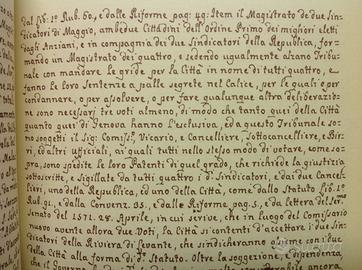 Dal lib: 1º Rub. 60, e dalle Riforme pag: 49: Item il Magistrato de due Sin-
dicatori di Maggio, ambedue Cittadini dell'ordine Primo de migliori eletti
dagli Anziani, e in compagnia dei due Sindicatori della Republica, for-
mando un Magistrato dei quattro, e sedendo ugualmente alzano Tribu-
nale con mandare le gride per la Città in nome di tutti quattro, e
fanno le loro Sentenze a palle segrete nel Calice, per le quali o per
condannare, o per assolvere, o per fare qualunque altra deliberazio-
ne sono necessarj tre voti almeno, di modo che tanto quei della Città
quanto quei di Genova hanno l'esclusiva, ed a questo Tribunale so-
no soggetti il Sig: Comiss.º, Vicario, Cancelliere, Sottocancelliere, e Bir-
ri, ed altri uffiziali, ai quali tutti nello stesso modo di votare, come so-
pra, sono spedite le loro Patenti di quel grado, che richiede la giustizia
sottoscritte, e sigillate da tutti quattro i d.i Sindicatori, e dai due Cancel-
lieri, uno della Republica, ed uno della Città, come dallo Statuto lib. 1º
Rub. 91., e dalla Conven.z 35., e dalle Riforme pag. 5., e da lettera del Ser.mo
Senato del 1571. 28. Aprile, in cui scrive, che in luogo del Comissario
nuovo avente allora due Voti, la Città si contenti d'accettare i due Sin-
dicatori della Riviera di Levante, che sindicheranno
della Città alla forma di d.º Statuto. Oltre la soggezione, e dipendenza